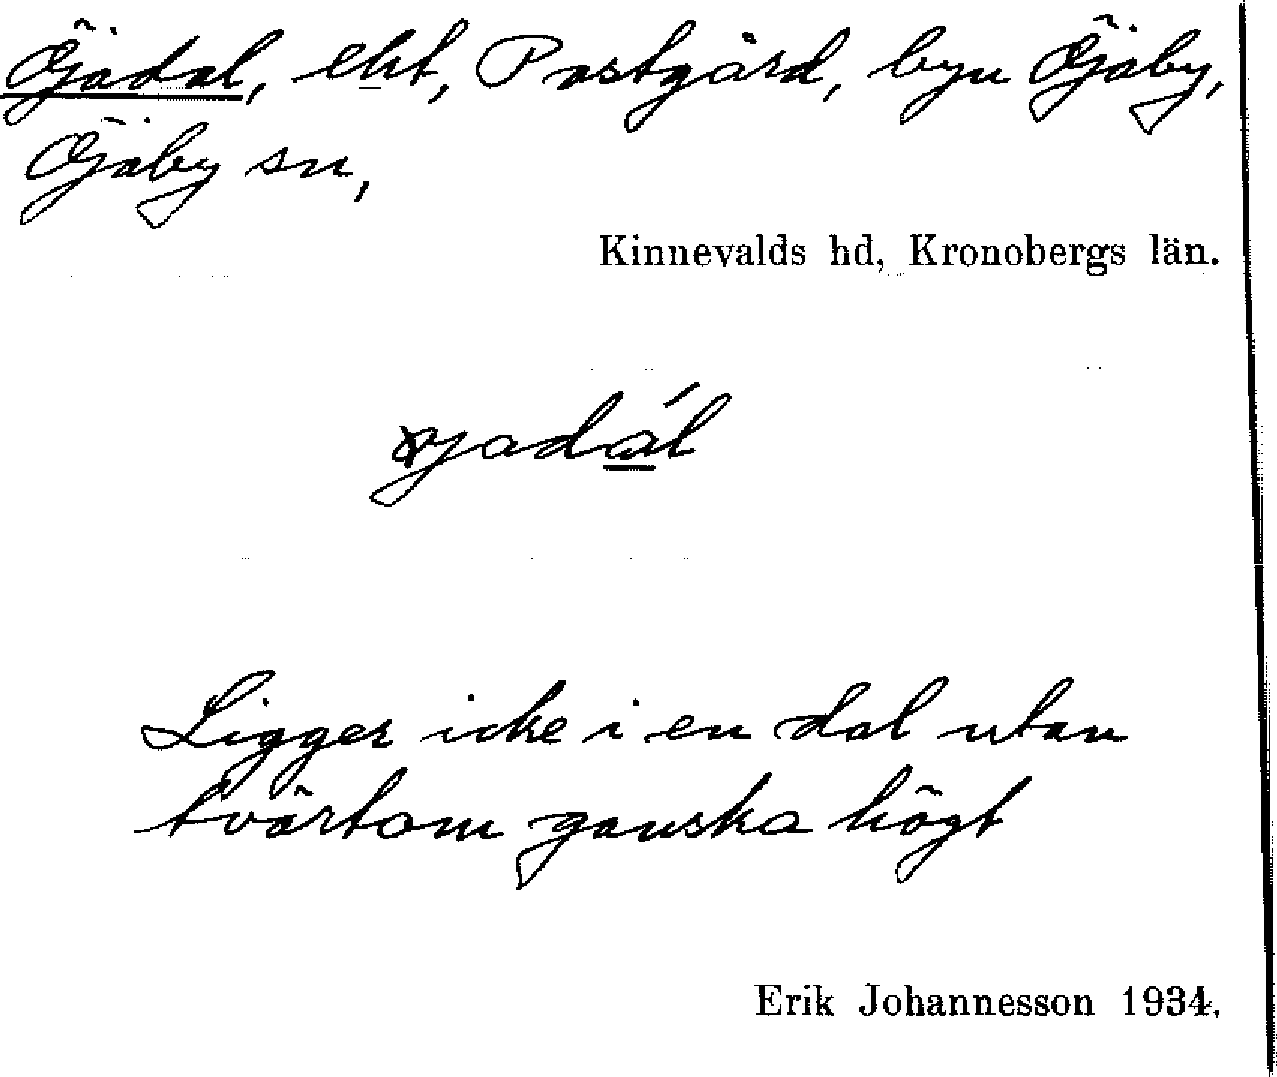 Öjadal, eht, Postgård, byn Öjaby,
Öjaby sn,
Kinnevalds hd, Kronobergs län.
Ligger icke i en dal utan
tvärtom ganska högt
Erik Johannesson 1934.